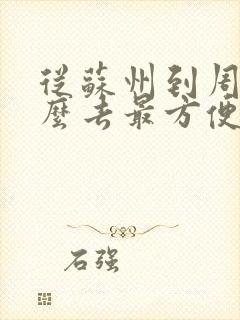 從蘇州到周
麼去最方便
石强